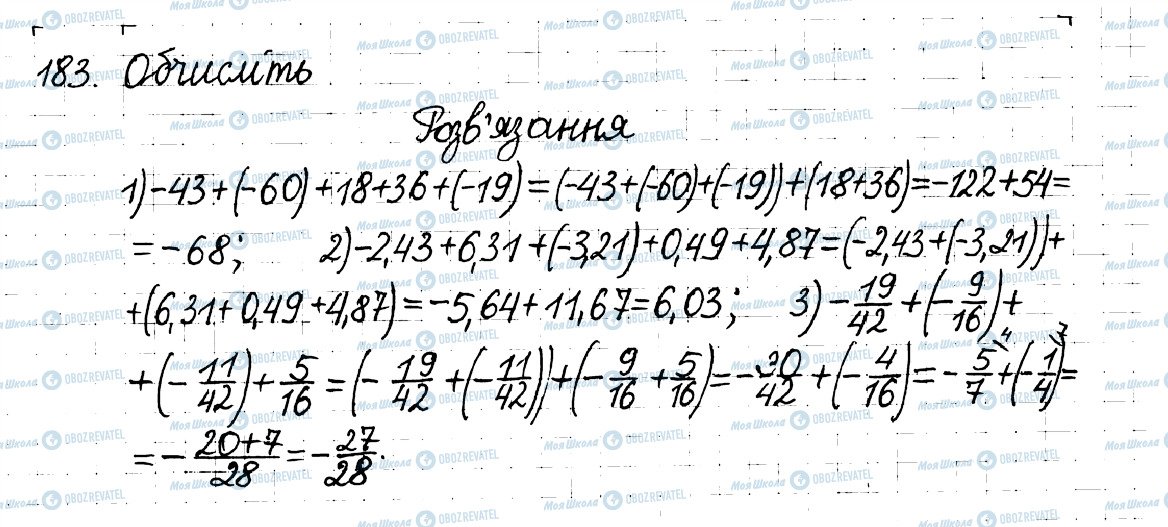 183. Обчисліть
Розв'язання
1) -43+(-60)+18+36+(-19)=(-43+(-60)+(-19))+(18+36)=-122+54=
=-68; 2) -2,43+6,31+(-3,21)+0,49+4,87=(-2,43+(-3,21))+
+(6,31+0,49+4,87)=-5,64+11,67=6,03; 3) -19/42+(-9/16)+
+(-11/42)+5/16=(-19/42+(-11/42))+(-9/16+5/16)=-30/42+(-4/16)=-5/7 4+(-1/4 7)=
=-(20+7)/28=-27/28.